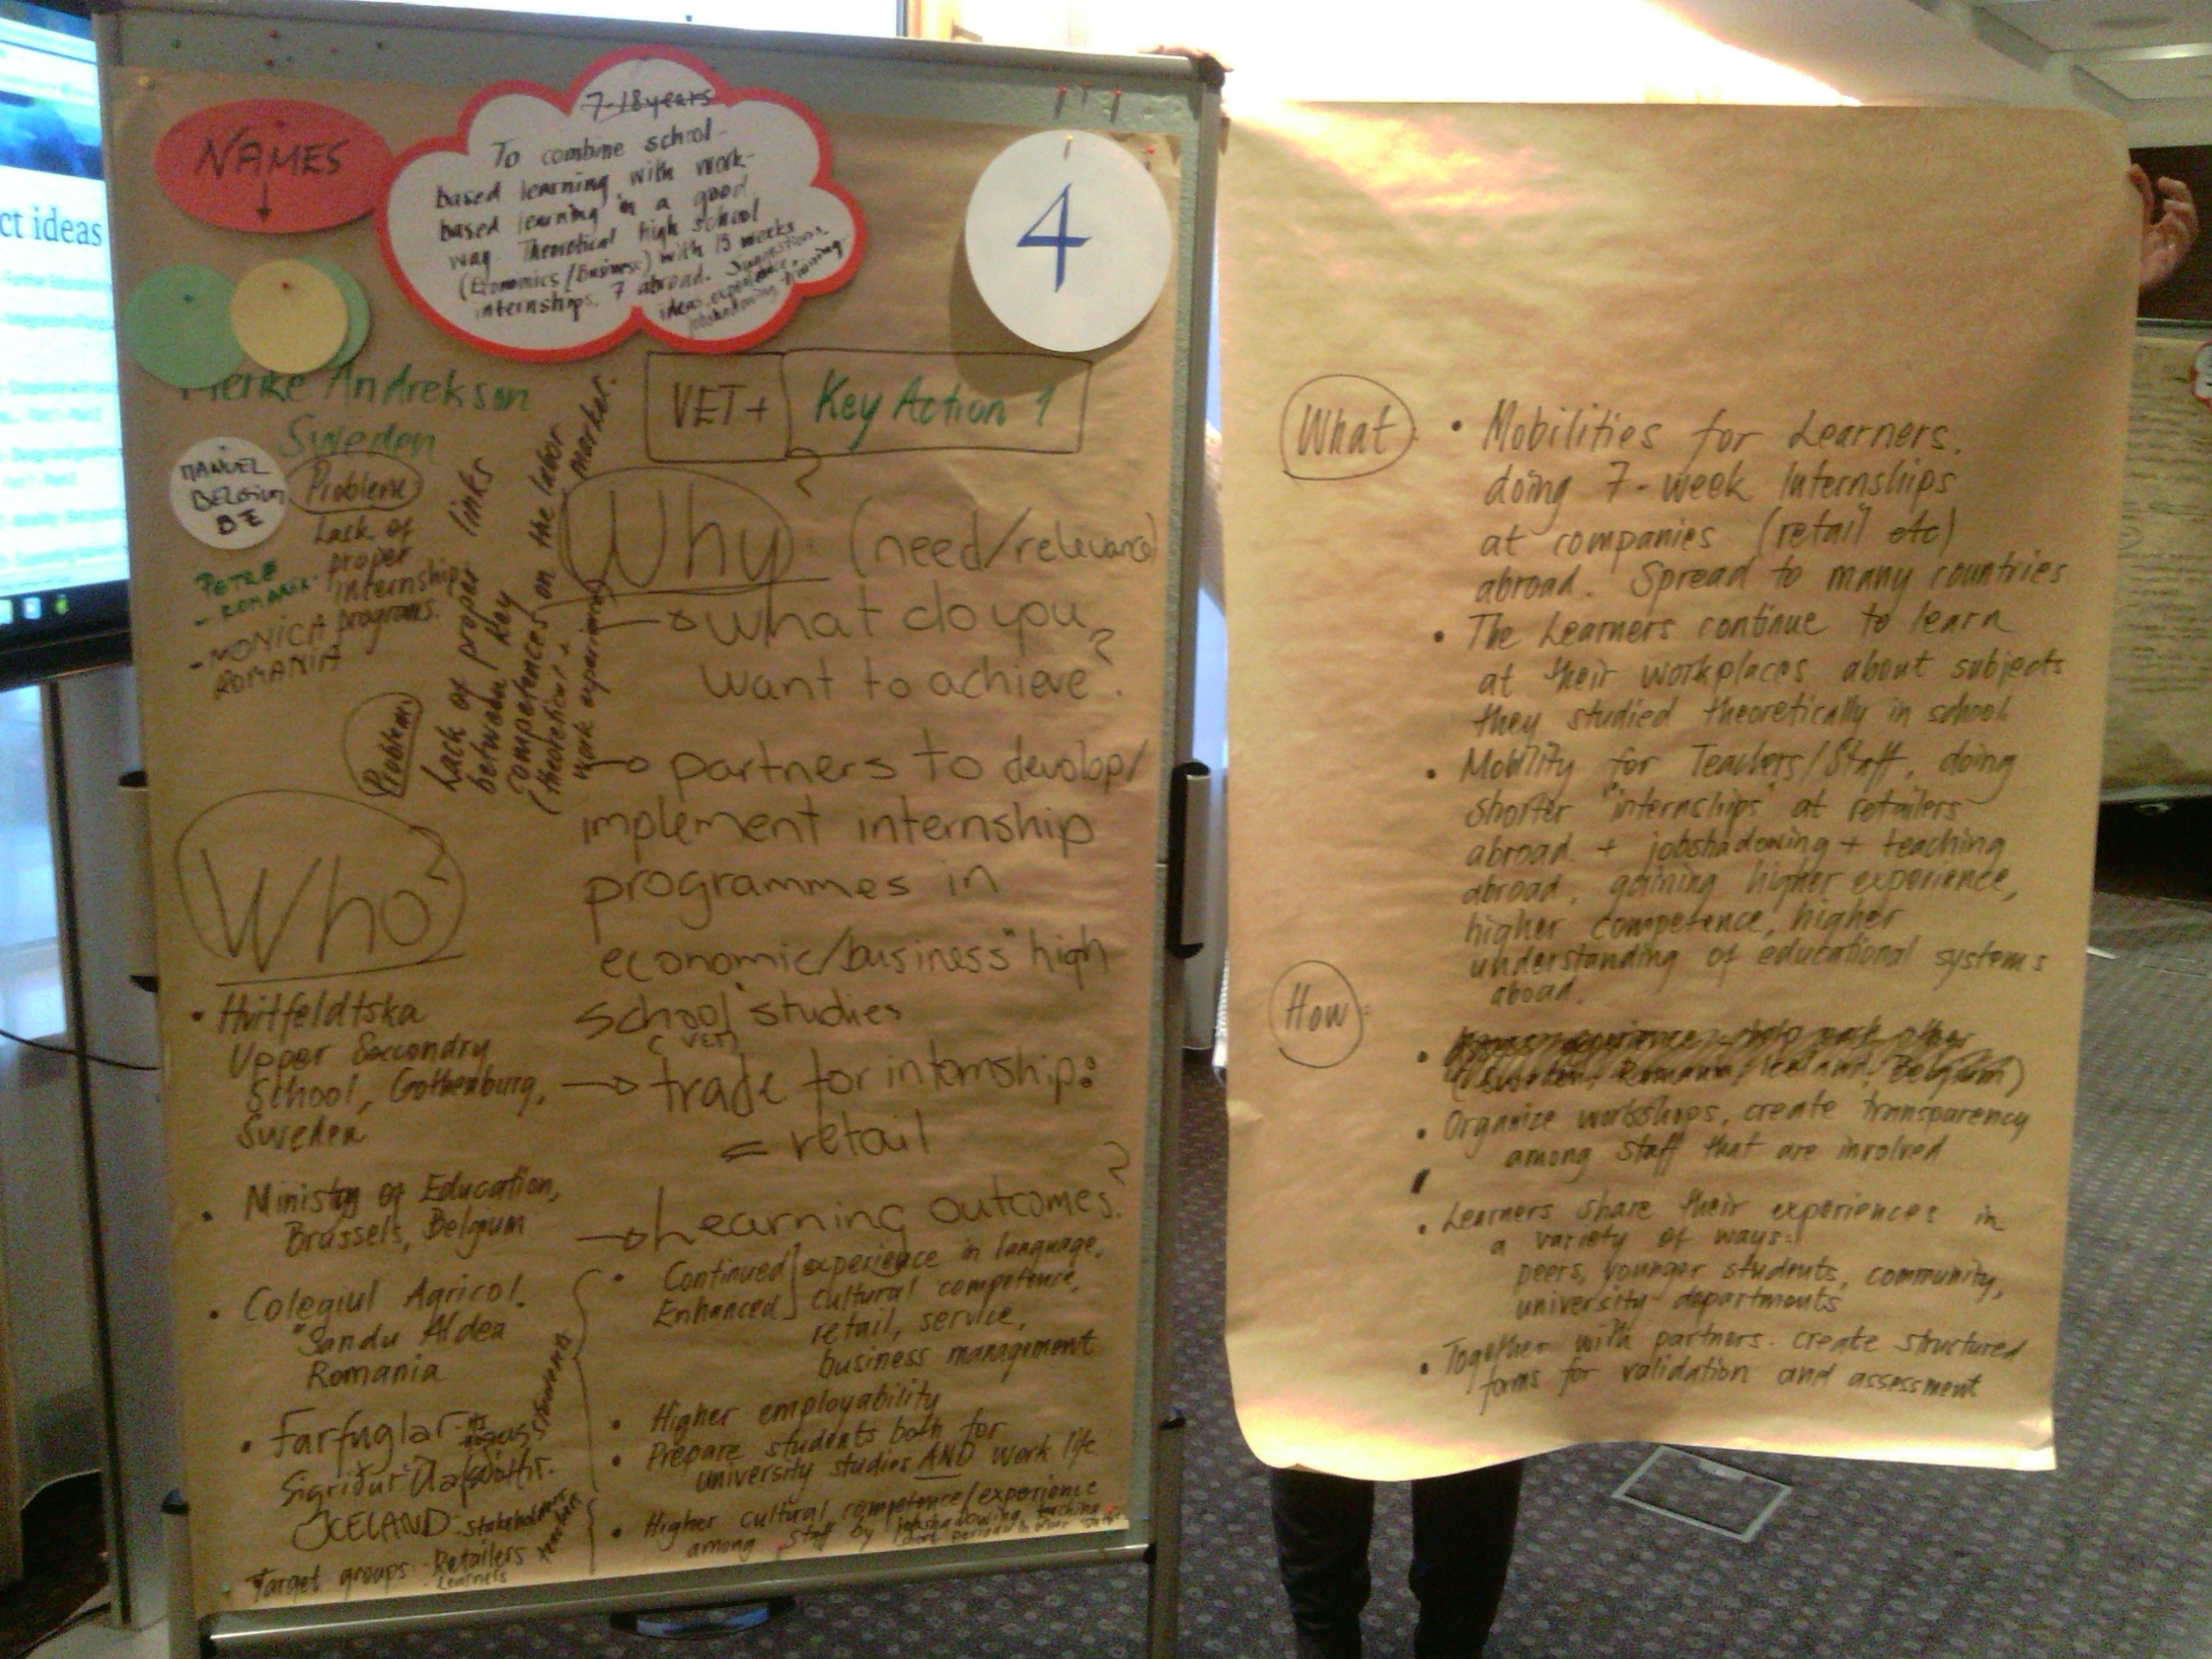 ct ideas
NAMES
7-18 years
To combine school-
based learning with work-
based learning in a good
way. Theoretical high school
(Economics/Business) with 15 weeks
internships, 7 abroad. Suggestions,
ideas, experience,
jobshadowing, training
4
Andrekson
Sweden
VET+ Key Action 1
MANUEL
BELGIUM
BE
PETRE
- ROMANIA
- MONICA
ROMANIA
Problem:
Lack of
proper
internship
programs.
Problem:
Lack of proper links
between key
competences on the labor market.
(theoretical +
work experience)
Why? (need/relevance)
→ what do you
want to achieve?
→ partners to devolop/
implement internship
programmes in
economic/business" high
school" studies
(VET)
→ trade for internship:
= retail
→ Learning outcomes?
• Continued experience in language,
Enhanced cultural competence,
retail, service,
business management
• Higher employability
• Prepare students both for
university studies AND work life
• Higher cultural competence/experience
among staff by jobshadowing, teaching
students
teachers
Who?
• Hvitfeldtska
Upper Seccondry
School, Gothenburg,
Sweden
• Ministry of Education,
Brussels, Belgium
• Colegiul Agricol.
"Sandu Aldea
Romania
• Farfuglar
Sigriður
ICELAND
Target groups - Retailers
- Learners
What: • Mobilities for Learners.
doing 7-week Internships
at companies (retail etc)
abroad. Spread to many countries
• The Learners continue to learn
at their workplaces about subjects
they studied theoretically in school
• Mobility for Teachers/Staff, doing
shorter "internships" at retailers
abroad + jobshadowing + teaching
abroad, gaining higher experience,
higher competence, higher
understanding of educational systems
aboad.
How:
• help each other
(Sweden, Romania, Iceland, Belgium)
• Organize workshops, create transparency
among staff that are involved
• Learners share their experiences in
a variety of ways:
peers, younger students, community,
university departments
• Together with partners. create structured
forms for validation and assessment